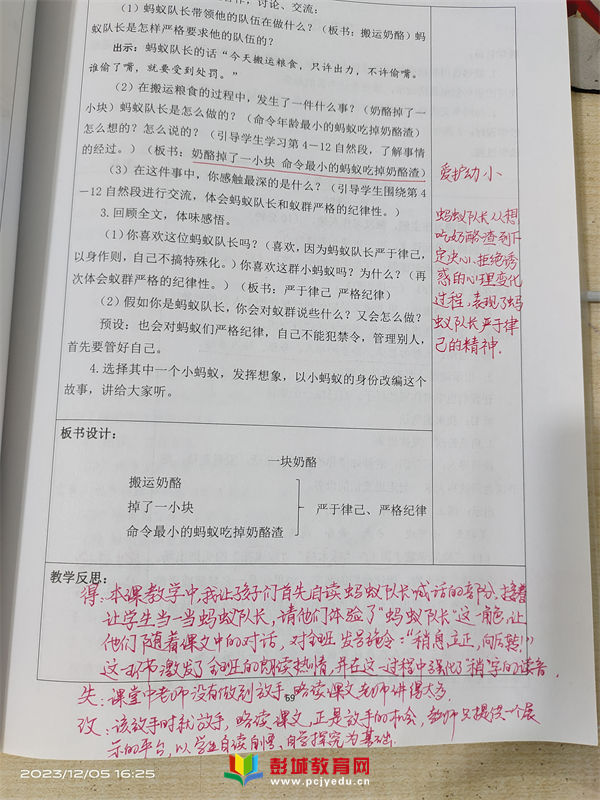 (1)蚂蚁队长带领他的队伍在做什么？(板书：搬运奶酪)蚂
蚁队长是怎样严格要求他的队伍的？
出示：蚂蚁队长的话“今天搬运粮食，只许出力，不许偷嘴。
谁偷了嘴，就要受到处罚。”
(2)在搬运粮食的过程中，发生了一件什么事？(奶酪掉了一
小块)蚂蚁队长是怎么做的？(命令年龄最小的蚂蚁吃掉奶酪渣)
怎么想的？怎么说的？(引导学生学习第4—12自然段，了解事情
的经过。)(板书：奶酪掉了一小块 命令最小的蚂蚁吃掉奶酪渣)
(3)在这件事中，你感触最深的是什么？(引导学生围绕第4
—12自然段进行交流，体会蚂蚁队长和蚁群严格的纪律性。)
3.回顾全文，体味感悟。
(1)你喜欢这位蚂蚁队长吗？(喜欢，因为蚂蚁队长严于律己，
以身作则，自己不搞特殊化。)你喜欢这群小蚂蚁吗？为什么？(再
次体会蚁群严格的纪律性。)(板书：严于律己 严格纪律)
(2)假如你是蚂蚁队长，你会对蚁群说些什么？又会怎么做？
预设：也会对蚂蚁们严格纪律，自己不能犯禁令，管理别人，
首先要管好自己。
4.选择其中一个小蚂蚁，发挥想象，以小蚂蚁的身份改编这个
故事，讲给大家听。
爱护幼小
蚂蚁队长从想
吃奶酪渣到下
定决心、拒绝诱
惑的心理变化
过程，表现了蚂
蚁队长严于律
己的精神.
板书设计：
一块奶酪
搬运奶酪
掉了一小块
严于律己、严格纪律
命令最小的蚂蚁吃掉奶酪渣
教学反思：
得：本课教学中，我让孩子们首先自读蚂蚁队长喊话的部分，接着
让学生当一当蚂蚁队长，请他们体验了“蚂蚁队长”这一角色，让
他们随着课文中的对话，对全班发号施令：“稍息，立正，向后转！”
这一环节激发了全班的朗读热情，并在这一过程中强化了稍字的读音，
失：课堂中老师没有做到放手，略读课文老师讲得太多，
59
改：该放手时就放手，略读课文，正是放手的机会，教师只提供一个展
示的平台，以学生自读自悟，自学探究为基础.
2023/12/05 16:25
彭城教育网
www.pcjyedu.cn